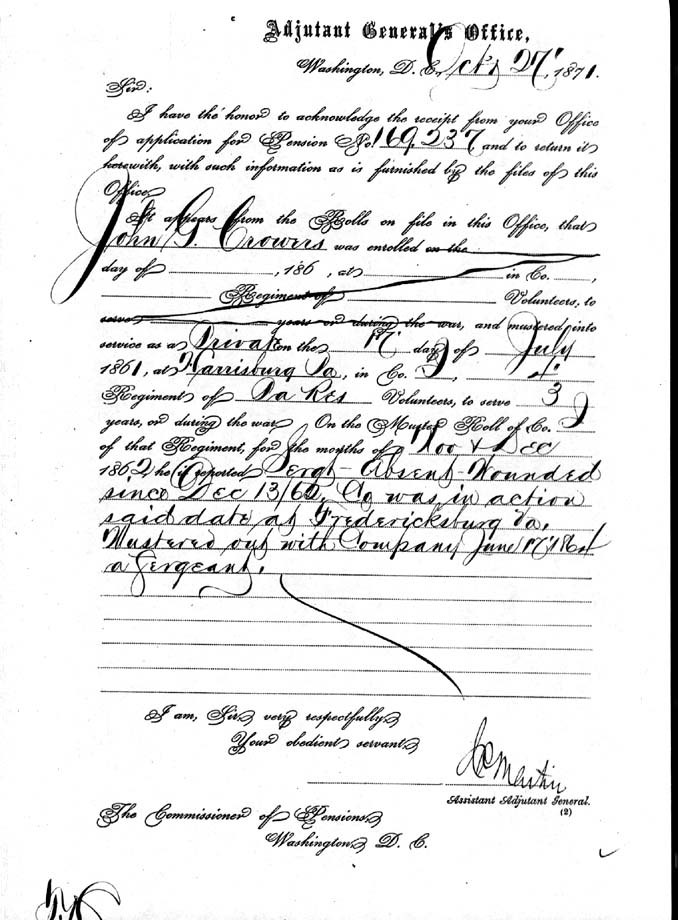 Adjutant General's Office,
Washington, D. C., Oct 27", 1871.
Sir:
I have the honor to acknowledge the receipt from your Office
of application for Pension No. 169,237 and to return it
herewith, with such information as is furnished by the files of this
Office.
It appears from the Rolls on file in this Office, that
John G. Crowers was enrolled on the
day of , 186 , at in Co. ,
Regiment of Volunteers, to
serve years or during the war, and mustered into
service as a Private on the 17" day of July
1861, at Harrisburg Pa, in Co. I, 4"
Regiment of Pa Res Volunteers, to serve 3
years, or during the war. On the Muster Roll of Co. I
of that Regiment, for the months of Nov & Dec
1862, he is reported Sergt - Absent - Wounded
since Dec 13/62. Co was in action
said date at Fredericksburg Va.
Mustered out with Company June 17" 1864
a Sergeant.
I am, Sir, very respectfully,
Your obedient servant,
Martin
Assistant Adjutant General.
(2)
The Commissioner of Pensions,
Washington, D. C.